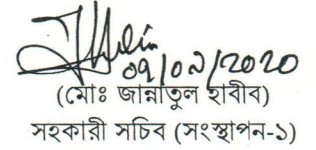 ০৭/০৯/2020
(মোঃ জান্নাতুল হাবীব)
সহকারী সচিব (সংস্থাপন-১)